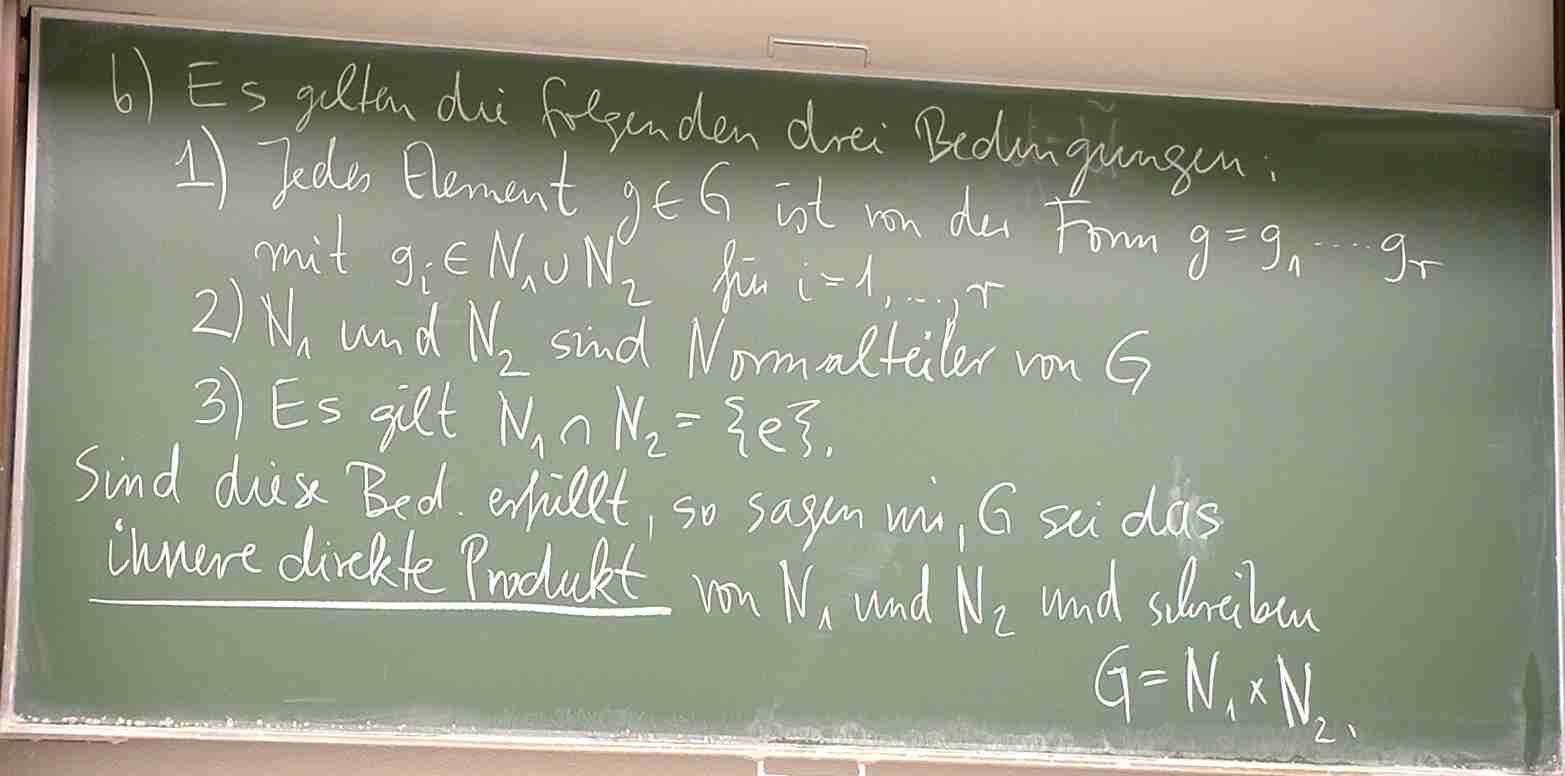 b) Es gelten die folgenden drei Bedingungen:
1) Jedes Element g ∈ G ist von der Form g = g₁ ····· gᵣ
mit gᵢ ∈ N₁ ∪ N₂ für i = 1, ..., r
2) N₁ und N₂ sind Normalteiler von G
3) Es gilt N₁ ∩ N₂ = {e}.
Sind diese Bed. erfüllt, so sagen wir, G sei das
innere direkte Produkt von N₁ und N₂ und schreiben
G = N₁ × N₂.